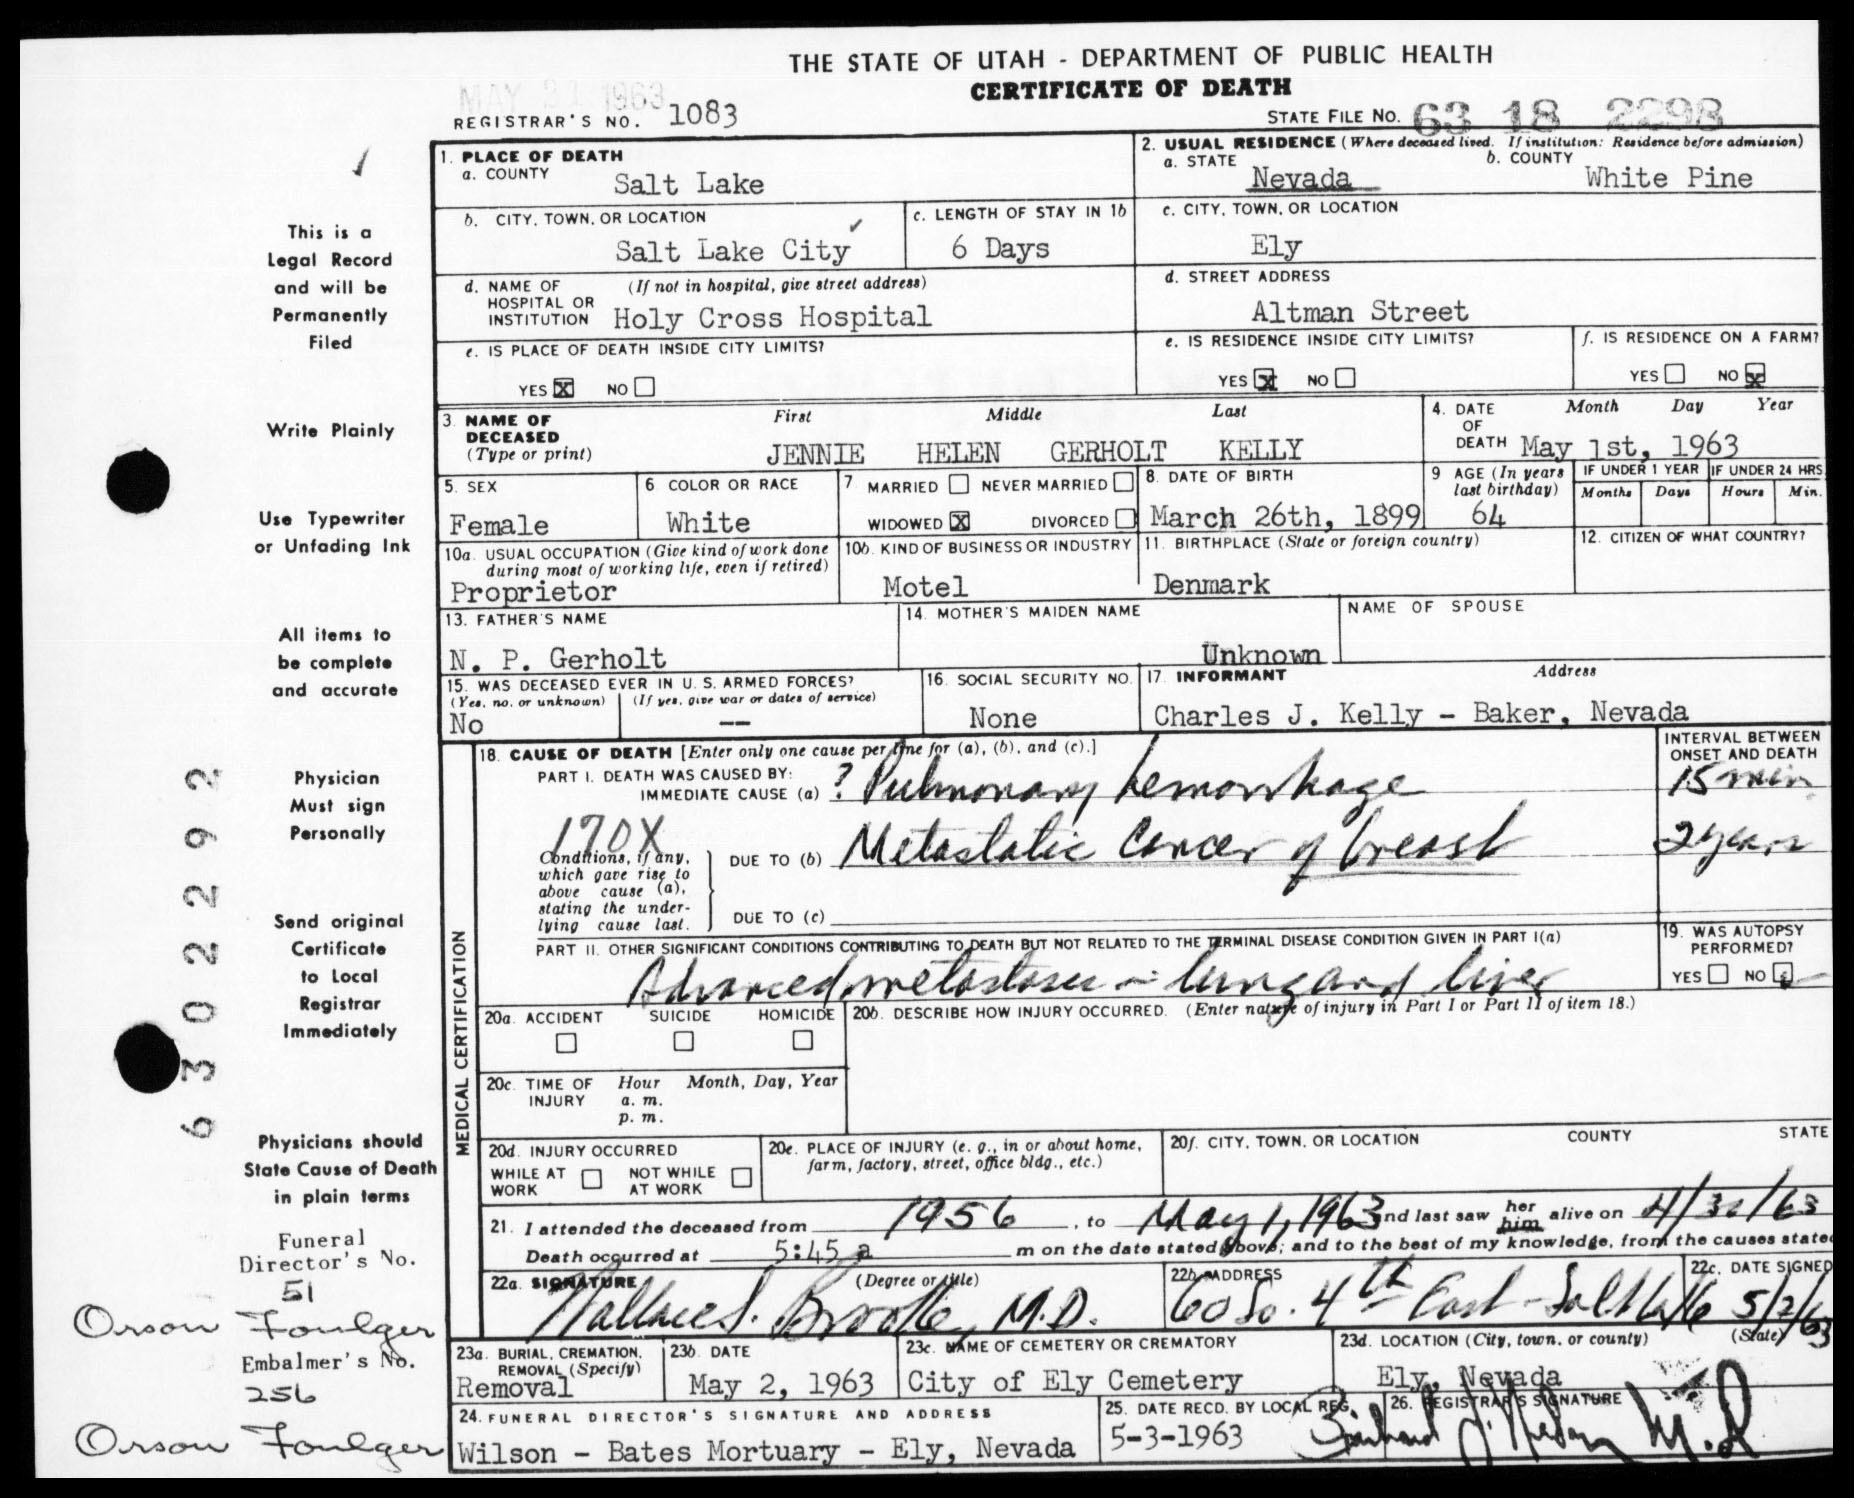 THE STATE OF UTAH - DEPARTMENT OF PUBLIC HEALTH
CERTIFICATE OF DEATH
MAY 21 1963
REGISTRAR'S NO. 1083
STATE FILE NO. 63 18 2298
This is a
Legal Record
and will be
Permanently
Filed
Write Plainly
Use Typewriter
or Unfading Ink
All items to
be complete
and accurate
Physician
Must sign
Personally
Send original
Certificate
to Local
Registrar
Immediately
Physicians should
State Cause of Death
in plain terms
Funeral
Director's No.
51
Orson Foulger
Embalmer's No.
256
Orson Foulger
6302292
1. PLACE OF DEATH
a. COUNTY
Salt Lake
2. USUAL RESIDENCE (Where deceased lived. If institution: Residence before admission)
a. STATE
Nevada
b. COUNTY
White Pine
b. CITY, TOWN, OR LOCATION
Salt Lake City
c. LENGTH OF STAY IN 1b
6 Days
c. CITY, TOWN, OR LOCATION
Ely
d. NAME OF HOSPITAL OR INSTITUTION (If not in hospital, give street address)
Holy Cross Hospital
d. STREET ADDRESS
Altman Street
e. IS PLACE OF DEATH INSIDE CITY LIMITS?
YES X NO
e. IS RESIDENCE INSIDE CITY LIMITS?
YES X NO
f. IS RESIDENCE ON A FARM?
YES NO X
3. NAME OF DECEASED (Type or print)
First Middle Last
JENNIE HELEN GERHOLT KELLY
4. DATE OF DEATH
Month Day Year
May 1st, 1963
5. SEX
Female
6 COLOR OR RACE
White
7 MARRIED NEVER MARRIED
WIDOWED X DIVORCED
8. DATE OF BIRTH
March 26th, 1899
9 AGE (In years last birthday)
64
IF UNDER 1 YEAR
Months Days
IF UNDER 24 HRS.
Hours Min.
10a. USUAL OCCUPATION (Give kind of work done during most of working life, even if retired)
Proprietor
10b. KIND OF BUSINESS OR INDUSTRY
Motel
11. BIRTHPLACE (State or foreign country)
Denmark
12. CITIZEN OF WHAT COUNTRY?
13. FATHER'S NAME
N. P. Gerholt
14. MOTHER'S MAIDEN NAME
Unknown
NAME OF SPOUSE
15. WAS DECEASED EVER IN U.S. ARMED FORCES?
(Yes, no, or unknown) (If yes, give war or dates of service)
No --
16. SOCIAL SECURITY NO.
None
17. INFORMANT Address
Charles J. Kelly - Baker, Nevada
MEDICAL CERTIFICATION
18. CAUSE OF DEATH [Enter only one cause per line for (a), (b), and (c).]
INTERVAL BETWEEN ONSET AND DEATH
PART I. DEATH WAS CAUSED BY:
IMMEDIATE CAUSE (a) ? Pulmonary hemorrhage
15 min
170X
Conditions, if any,
which gave rise to
above cause (a),
stating the under-
lying cause last.
DUE TO (b) Metastatic Cancer of breast
2 years
DUE TO (c)
PART II. OTHER SIGNIFICANT CONDITIONS CONTRIBUTING TO DEATH BUT NOT RELATED TO THE TERMINAL DISEASE CONDITION GIVEN IN PART I(a)
Advanced metastases - lung and liver
19. WAS AUTOPSY PERFORMED?
YES NO
20a. ACCIDENT SUICIDE HOMICIDE
20b. DESCRIBE HOW INJURY OCCURRED. (Enter nature of injury in Part I or Part II of item 18.)
20c. TIME OF INJURY
Hour Month, Day, Year
a. m.
p. m.
20d. INJURY OCCURRED
WHILE AT WORK NOT WHILE AT WORK
20e. PLACE OF INJURY (e. g., in or about home, farm, factory, street, office bldg., etc.)
20f. CITY, TOWN, OR LOCATION COUNTY STATE
21. I attended the deceased from 1956, to May 1, 1963 and last saw her him alive on 4/30/63
Death occurred at 5:45 a m on the date stated above; and to the best of my knowledge, from the causes stated
22a. SIGNATURE (Degree or title)
Wallace S. Brooke, M.D.
22b. ADDRESS
60 So. 4th East - Salt Lake
22c. DATE SIGNED
5/2/63
23a. BURIAL, CREMATION, REMOVAL (Specify)
Removal
23b. DATE
May 2, 1963
23c. NAME OF CEMETERY OR CREMATORY
City of Ely Cemetery
23d. LOCATION (City, town, or county) (State)
Ely, Nevada
24. FUNERAL DIRECTOR'S SIGNATURE AND ADDRESS
Wilson - Bates Mortuary - Ely, Nevada
25. DATE RECD. BY LOCAL REG.
5-3-1963
26. REGISTRAR'S SIGNATURE
M.D